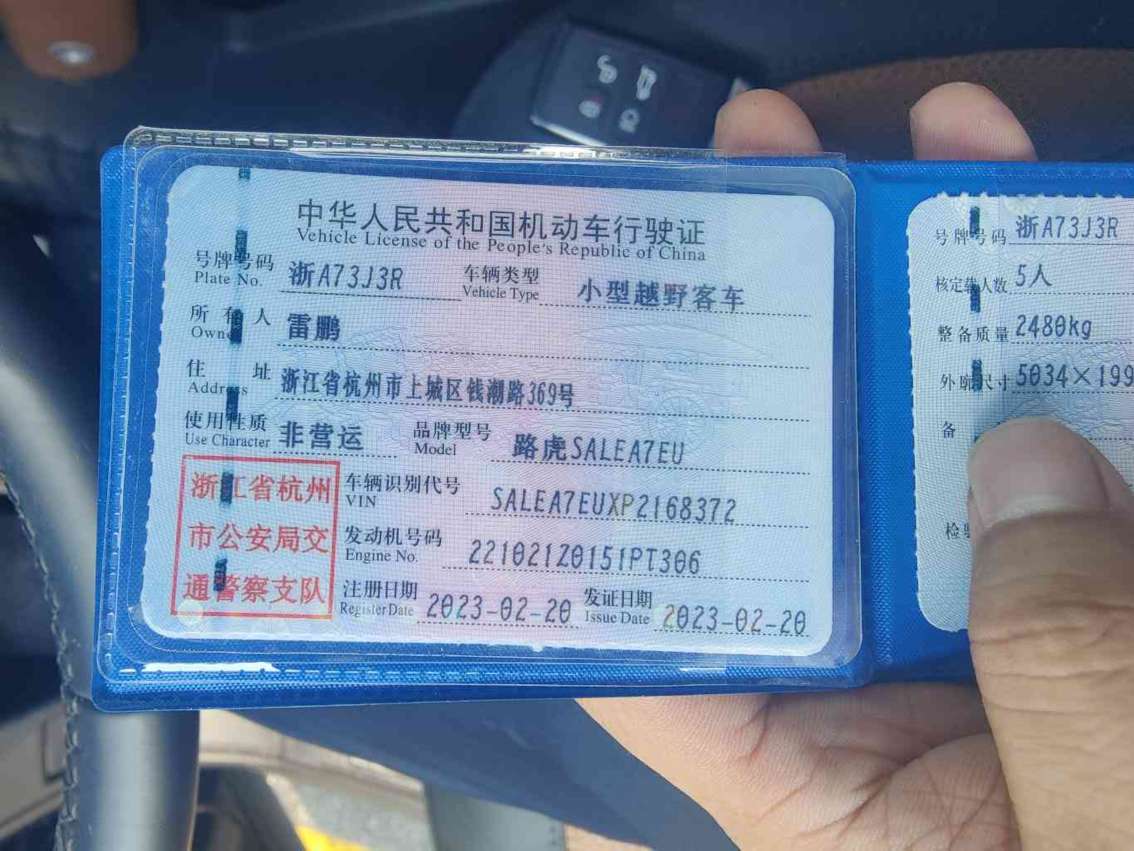 中华人民共和国机动车行驶证
Vehicle License of the People's Republic of China
号牌号码 浙A73J3R 车辆类型 小型越野客车
Plate No. Vehicle Type
所有人 雷鹏
Owner
住址 浙江省杭州市上城区钱潮路369号
Address
使用性质 非营运 品牌型号 路虎SALEA7EU
Use Character Model
浙江省杭州
市公安局交
通警察支队
车辆识别代号 SALEA7EUXP2168372
VIN
发动机号码 221021Z0151PT306
Engine No.
注册日期 2023-02-20 发证日期 2023-02-20
Register Date Issue Date
号牌号码 浙A73J3R
核定载人数 5人
整备质量 2480kg
外廓尺寸 5034×199
备
检验